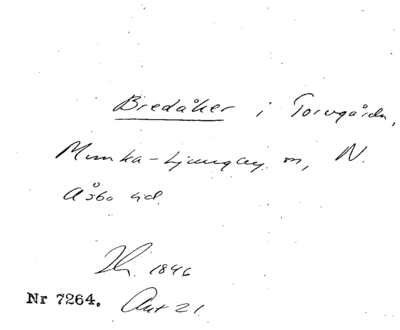 Bredåker i Torvgårdn,
Munka-Ljungby sn, N.
Åsbo hd.
1846
Nr 7264. Akt 21